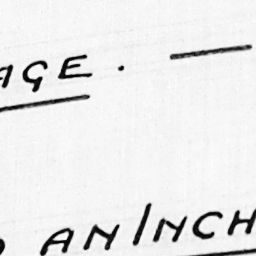 AGE. —
AN INCH